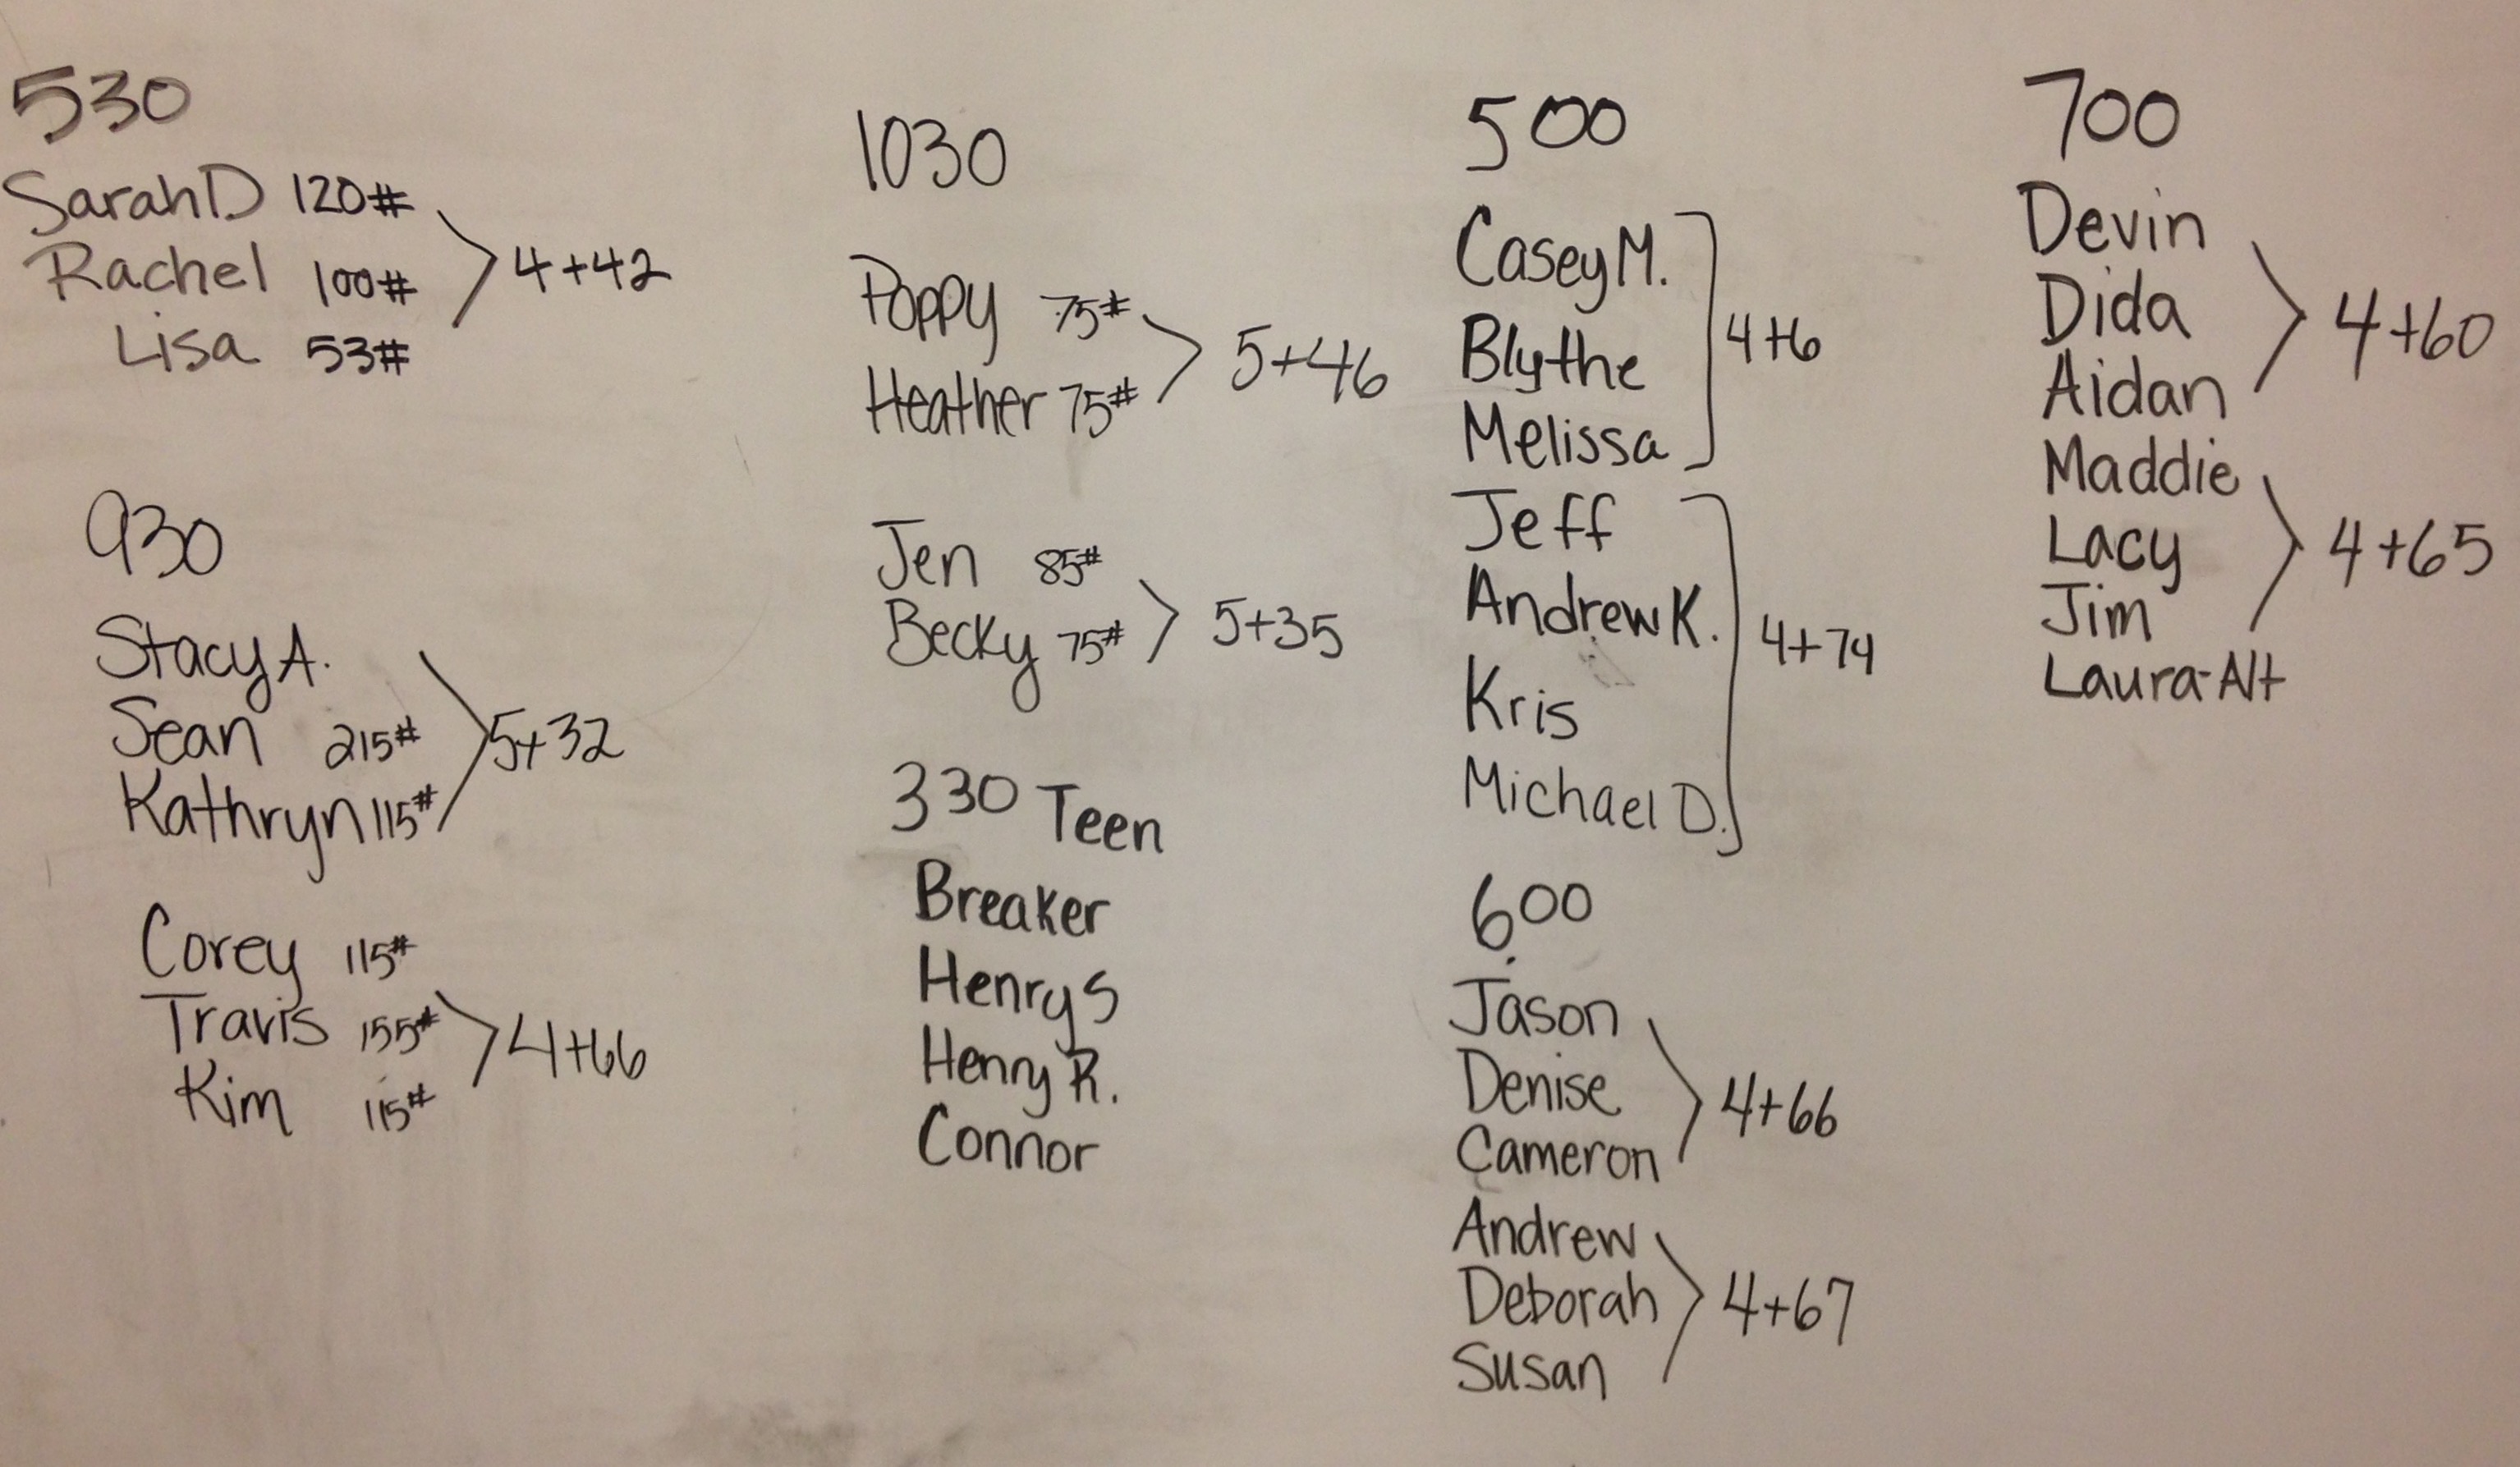 530
Sarah D 120#
Rachel 100#
Lisa 53#
4+42
930
Stacy A.
Sean 215#
Kathryn 115#
5+32
Corey 115#
Travis 155#
Kim 115#
4+66
1030
Poppy 75#
Heather 75#
5+46
Jen 85#
Becky 75#
5+35
330 Teen
Breaker
Henry S
Henry R.
Connor
500
Casey M.
Blythe
Melissa
4+6
Jeff
Andrew K.
Kris
Michael D.
4+74
600
Jason
Denise
Cameron
4+66
Andrew
Deborah
Susan
4+67
700
Devin
Dida
Aidan
4+60
Maddie
Lacy
Jim
4+65
Laura-Alt